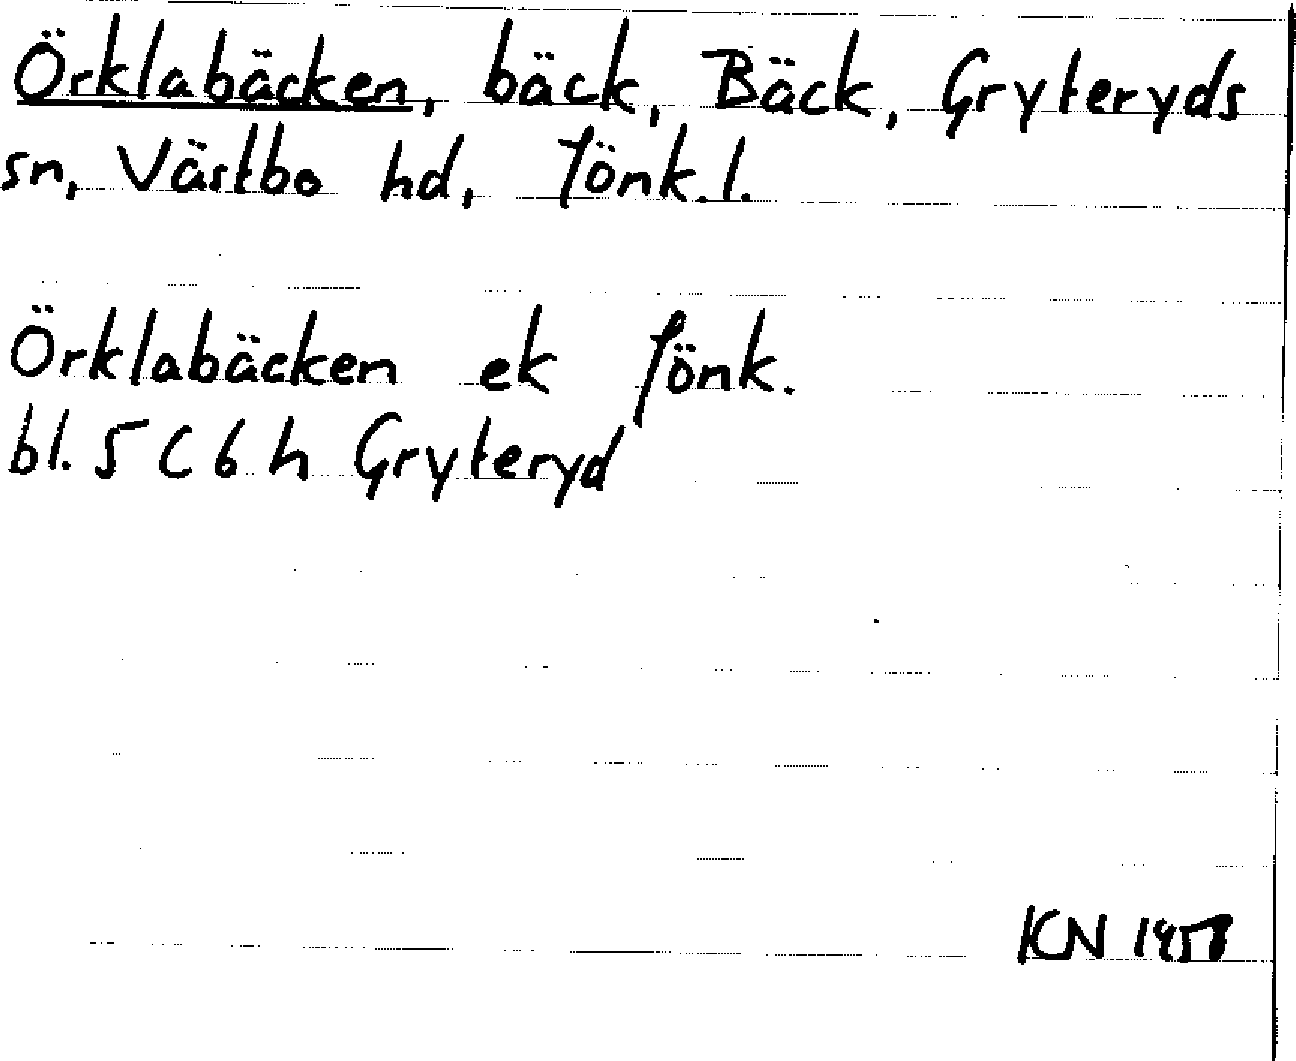 Örklabäcken, bäck, Bäck, Gryteryds
sn, Västbo hd, Jönk.l.
Örklabäcken ek Jönk.
bl. 5 C 6 h Gryteryd
KCN